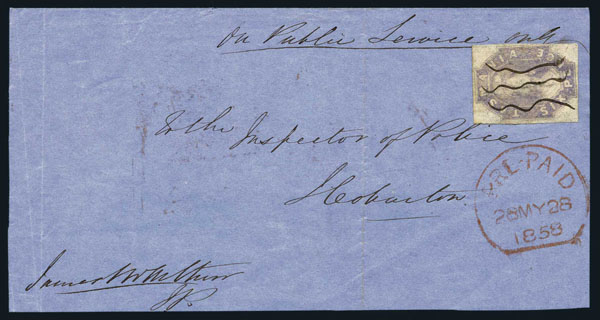 On Public Service only
To the Inspector of Police
Hobarton
PRE-PAID
28MY28
1858
James
JP.